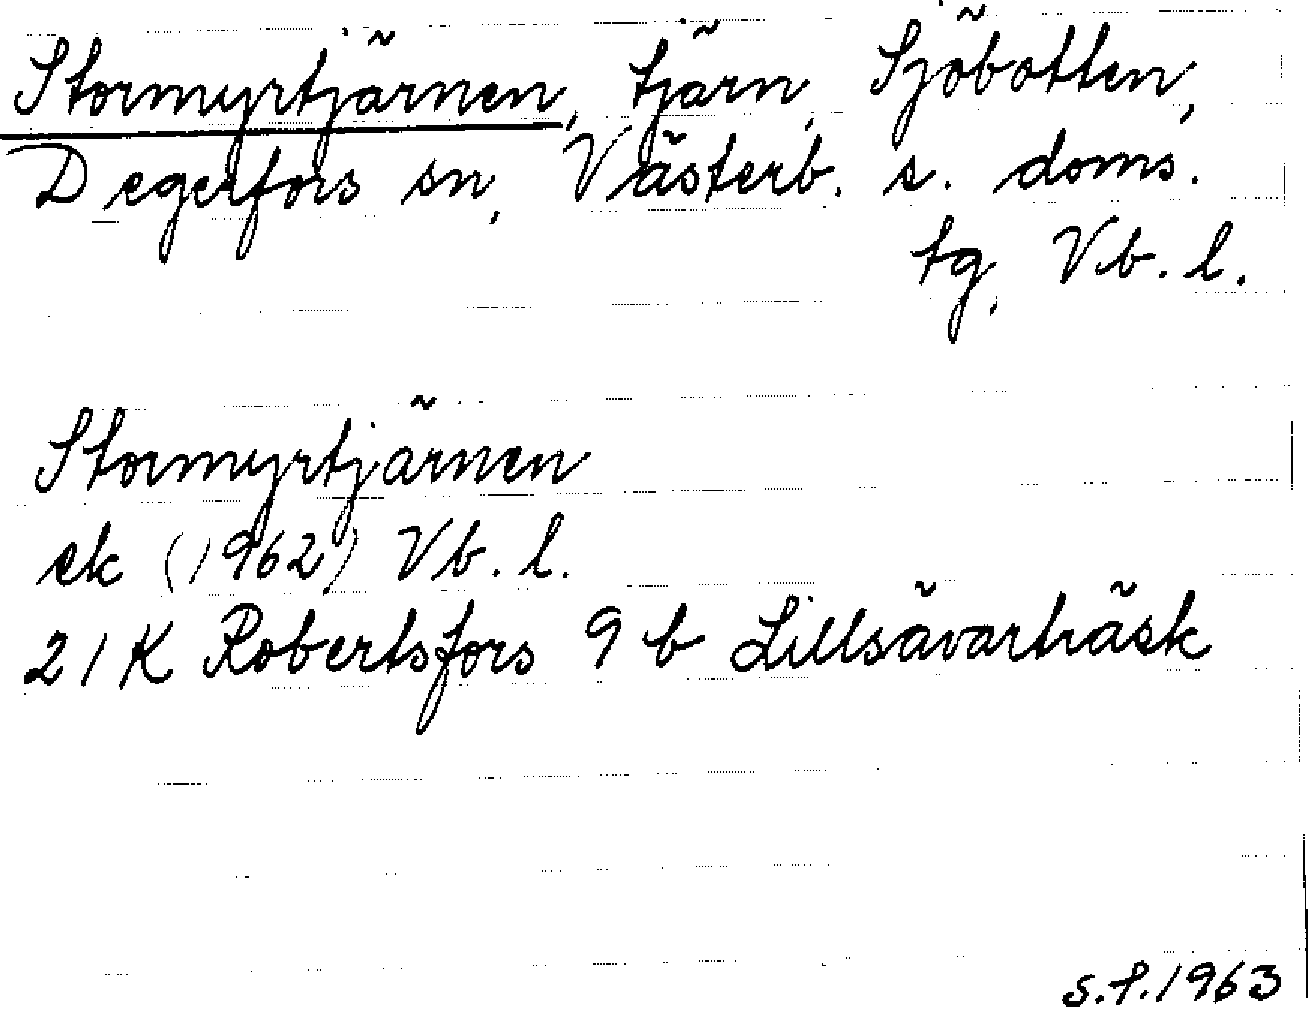 Stormyrtjärnen, tjärn, Sjöbotten,
Degerfors sn, Västerb. s. doms.
tg, Vb. l.
Stormyrtjärnen
ek (1962) Vb. l.
21K Robertsfors 9b Lillsävarträsk
s.f. 1963